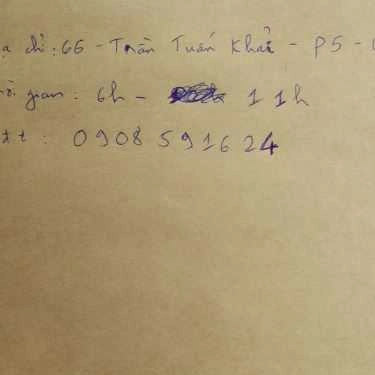 ạ chỉ: 66 - Trần Tuấn Khải - P5 -
ời gian: 6h - 11h
đt: 0908 591624